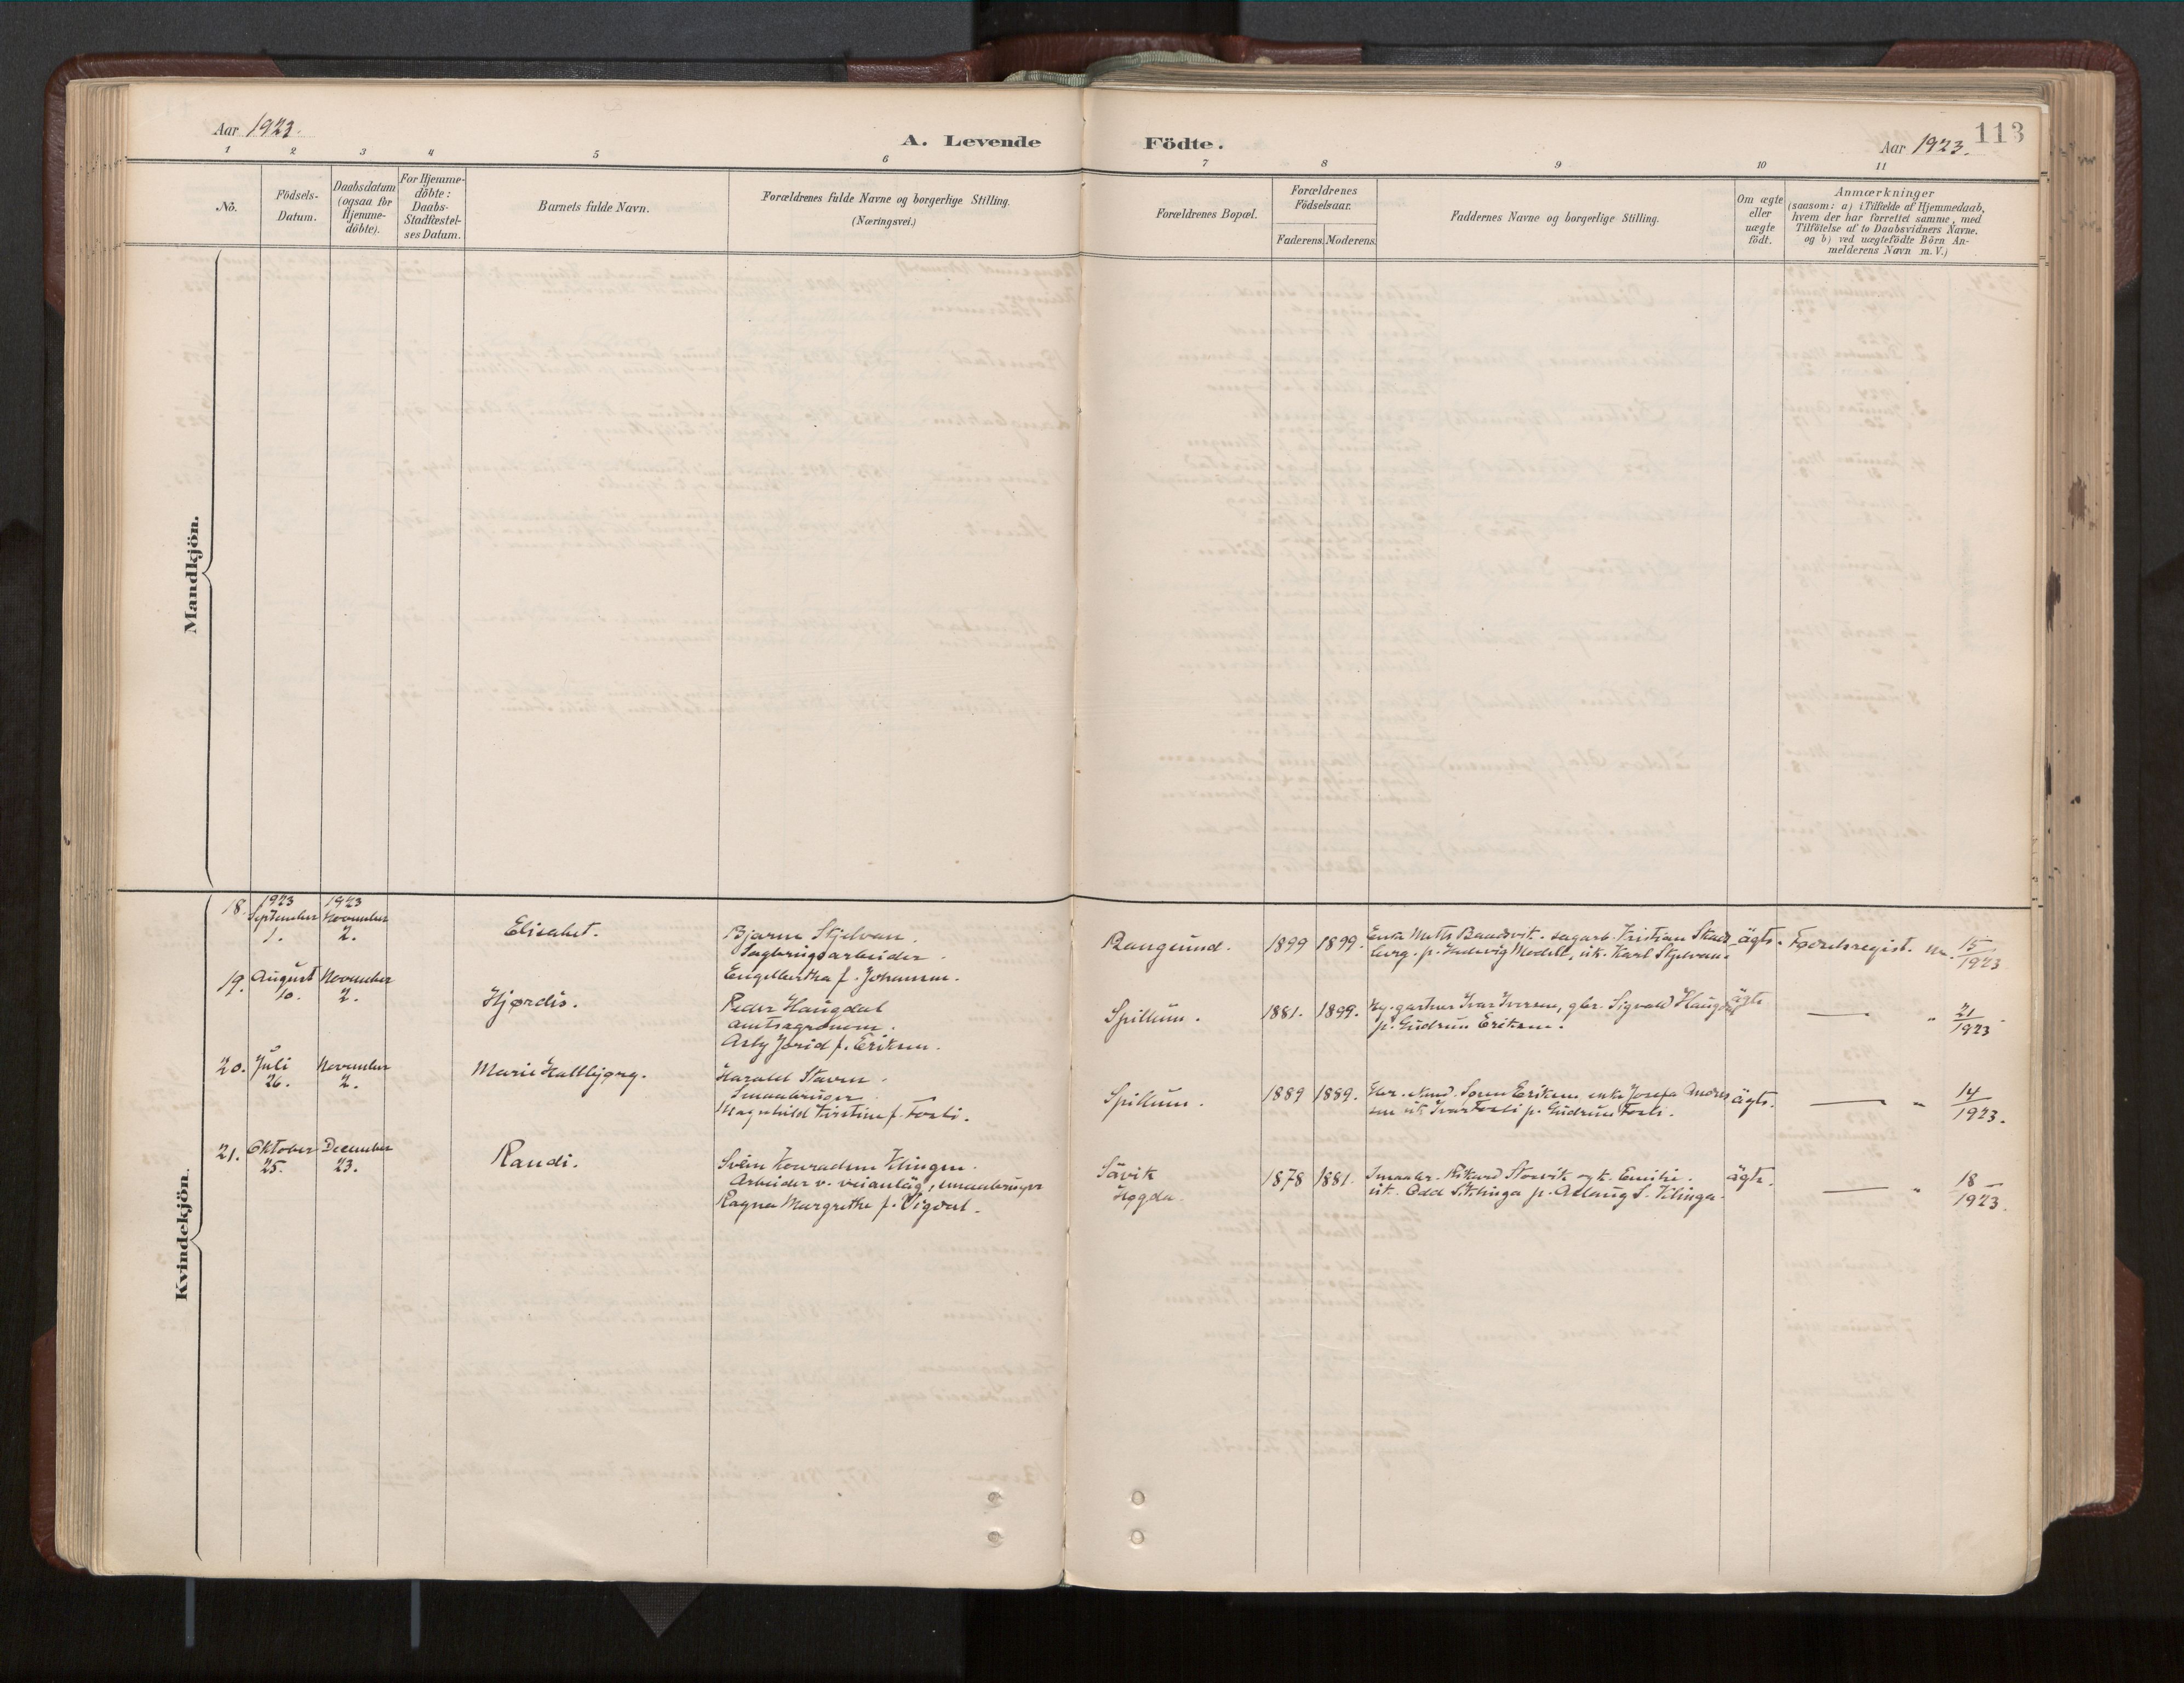 Aar 1923.
A. Levende Födte.
Aar 1923.
113
1 2 3 4 5 6 7 8 9 10 11
No.
Födsels-
Datum.
Daabsdatum
(ogsaa for
Hjemme-
döbte).
For Hjemme-
döbte:
Daabs-
Stadfæstel-
ses Datum.
Barnets fulde Navn.
Forældrenes fulde Navne og borgerlige Stilling.
(Næringsvei.)
Forældrenes Bopæl.
Forældrenes
Födselsaar.
Faderens. Moderens.
Faddernes Navne og borgerlige Stilling.
Om ægte
eller
uægte
födt.
Anmærkninger
(saasom: a) i Tilfælde af Hjemmedaab,
hvem der har forrettet samme, med
Tilföielse af to Daabsvidners Navne,
og b) ved uægtefödte Börn An-
melderens Navn m. V.)
Mandkjön.
Kvindekjön.
18. 1923 September 1. 1923 November 2.
Elisabet.
Bjarne Skjelvan.
Sagbrugsarbeider.
Engelbertha f. Johansen.
Rangsund. 1899 1899.
sagarb. Kristian
p. Ludvig Modell, uk. Karl Skjelvan.
ägte. Fødselsregist. nr. 15/1923
19. August 10. November 2.
Hjørdis.
Peder Haugdal
amtsagronom.
Asly Jorid f. Eriksen.
Spillum. 1881. 1899.
gartner Ivar Iversen, gbr. Sigvald
p. Gudrun Eriksen.
ägte — " 21/1923.
20. Juli 26. November 2.
Marie Hallbjørg.
Harald Staven.
Smaabruger
Magnhild Kirstine f. Fosli.
Spillum. 1889 1889.
Søren Eriksen, enke Josefa Andres
sen uk. Ivar Fosli p. Gudrun Fosli.
ägte. — " 14/1923.
21. Oktober 25. December 23.
Randi.
Svein Konradsen Klingen.
Arbeider v. veianlæg, smaabruger
Ragna Margrethe f. Vigdal.
Sävik
Høgda. 1878 1881.
Smaabr. Rikard Storvik og k. Emilie.
uk. Odd S. Klinga p. Aslaug S. Klinga.
ägte. — " 18/1923.